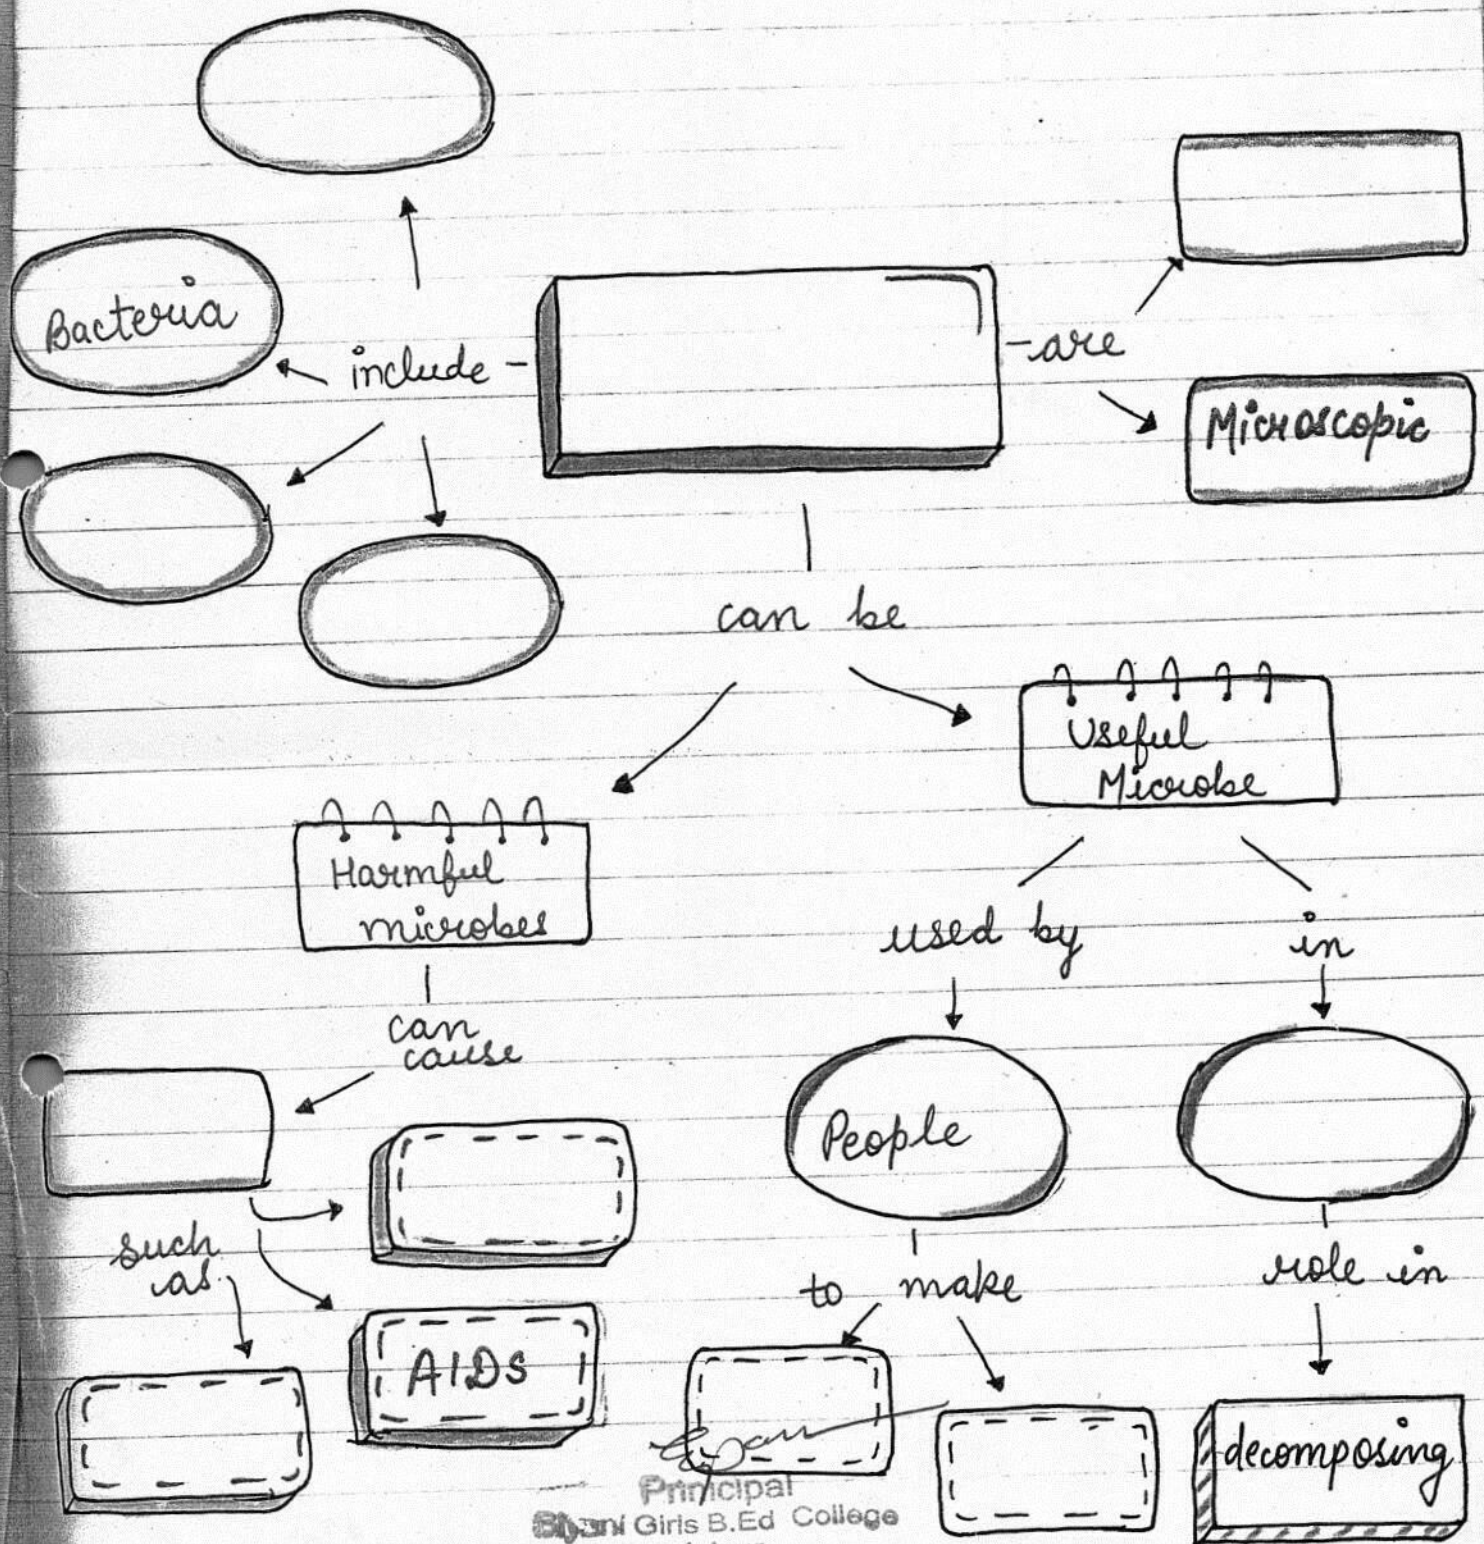 Bacteria
include
are
Microscopic
can be
Useful
Microbe
Harmful
microbes
used by
in
can
cause
People
such
as
to make
role in
AIDs
decomposing
Principal
Girls B.Ed College